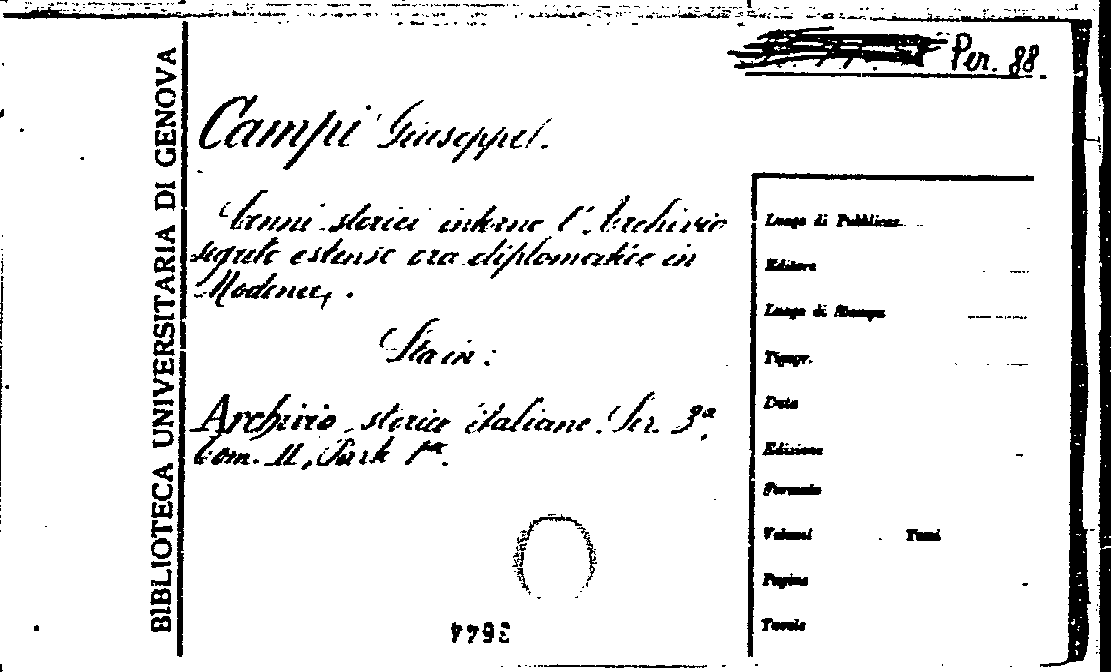 Per. 88.
BIBLIOTECA UNIVERSITARIA DI GENOVA
Campi Giuseppe.
Cenni storici intorno l'Archivio
segreto estense ora diplomatico in
Modena.
Sta in:
Archivio storico italiano. Ser. 3ª,
Tom. II, Parte 1ª.
Luogo di Pubblicaz.
Editore
Luogo di Stampa
Tipogr.
Data
Edizione
Formato
Volumi Tomi
Pagine
Tavole
3644